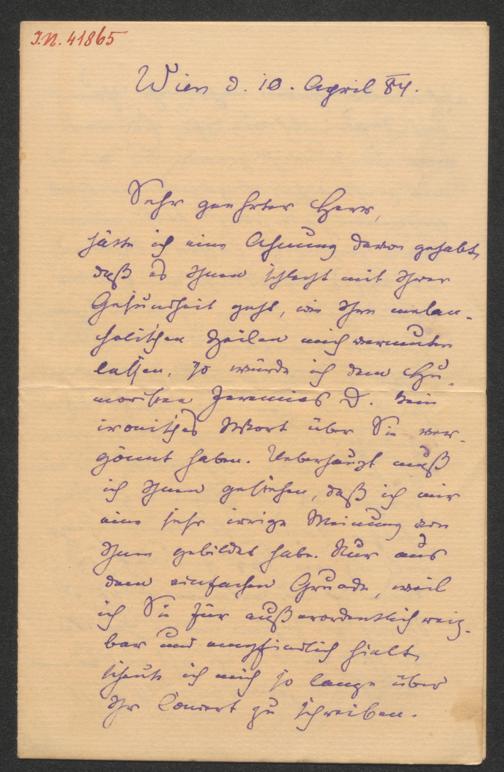 I.N. 41865
Wien d. 10. April 84.
Sehr geehrter Herr,
hätte ich eine Ahnung davon gehabt,
daß es Ihnen schlecht mit Ihrer
Gesundheit geht, wie Ihre melan-
cholischen Zeilen mich vermuthen
lassen, so würde ich dem Hu-
moristen Jeremias D. kein
ironisches Wort über Sie ver-
gönnt haben. Ueberhaupt muß
ich Ihnen gestehen, daß ich mir
eine sehr irrige Meinung von
Ihnen gebildet habe. Nur aus
dem einfachen Grunde, weil
ich Sie für außerordentlich reiz-
bar und empfindlich hielt,
scheute ich mich so lange über
Ihr Concert zu schreiben.